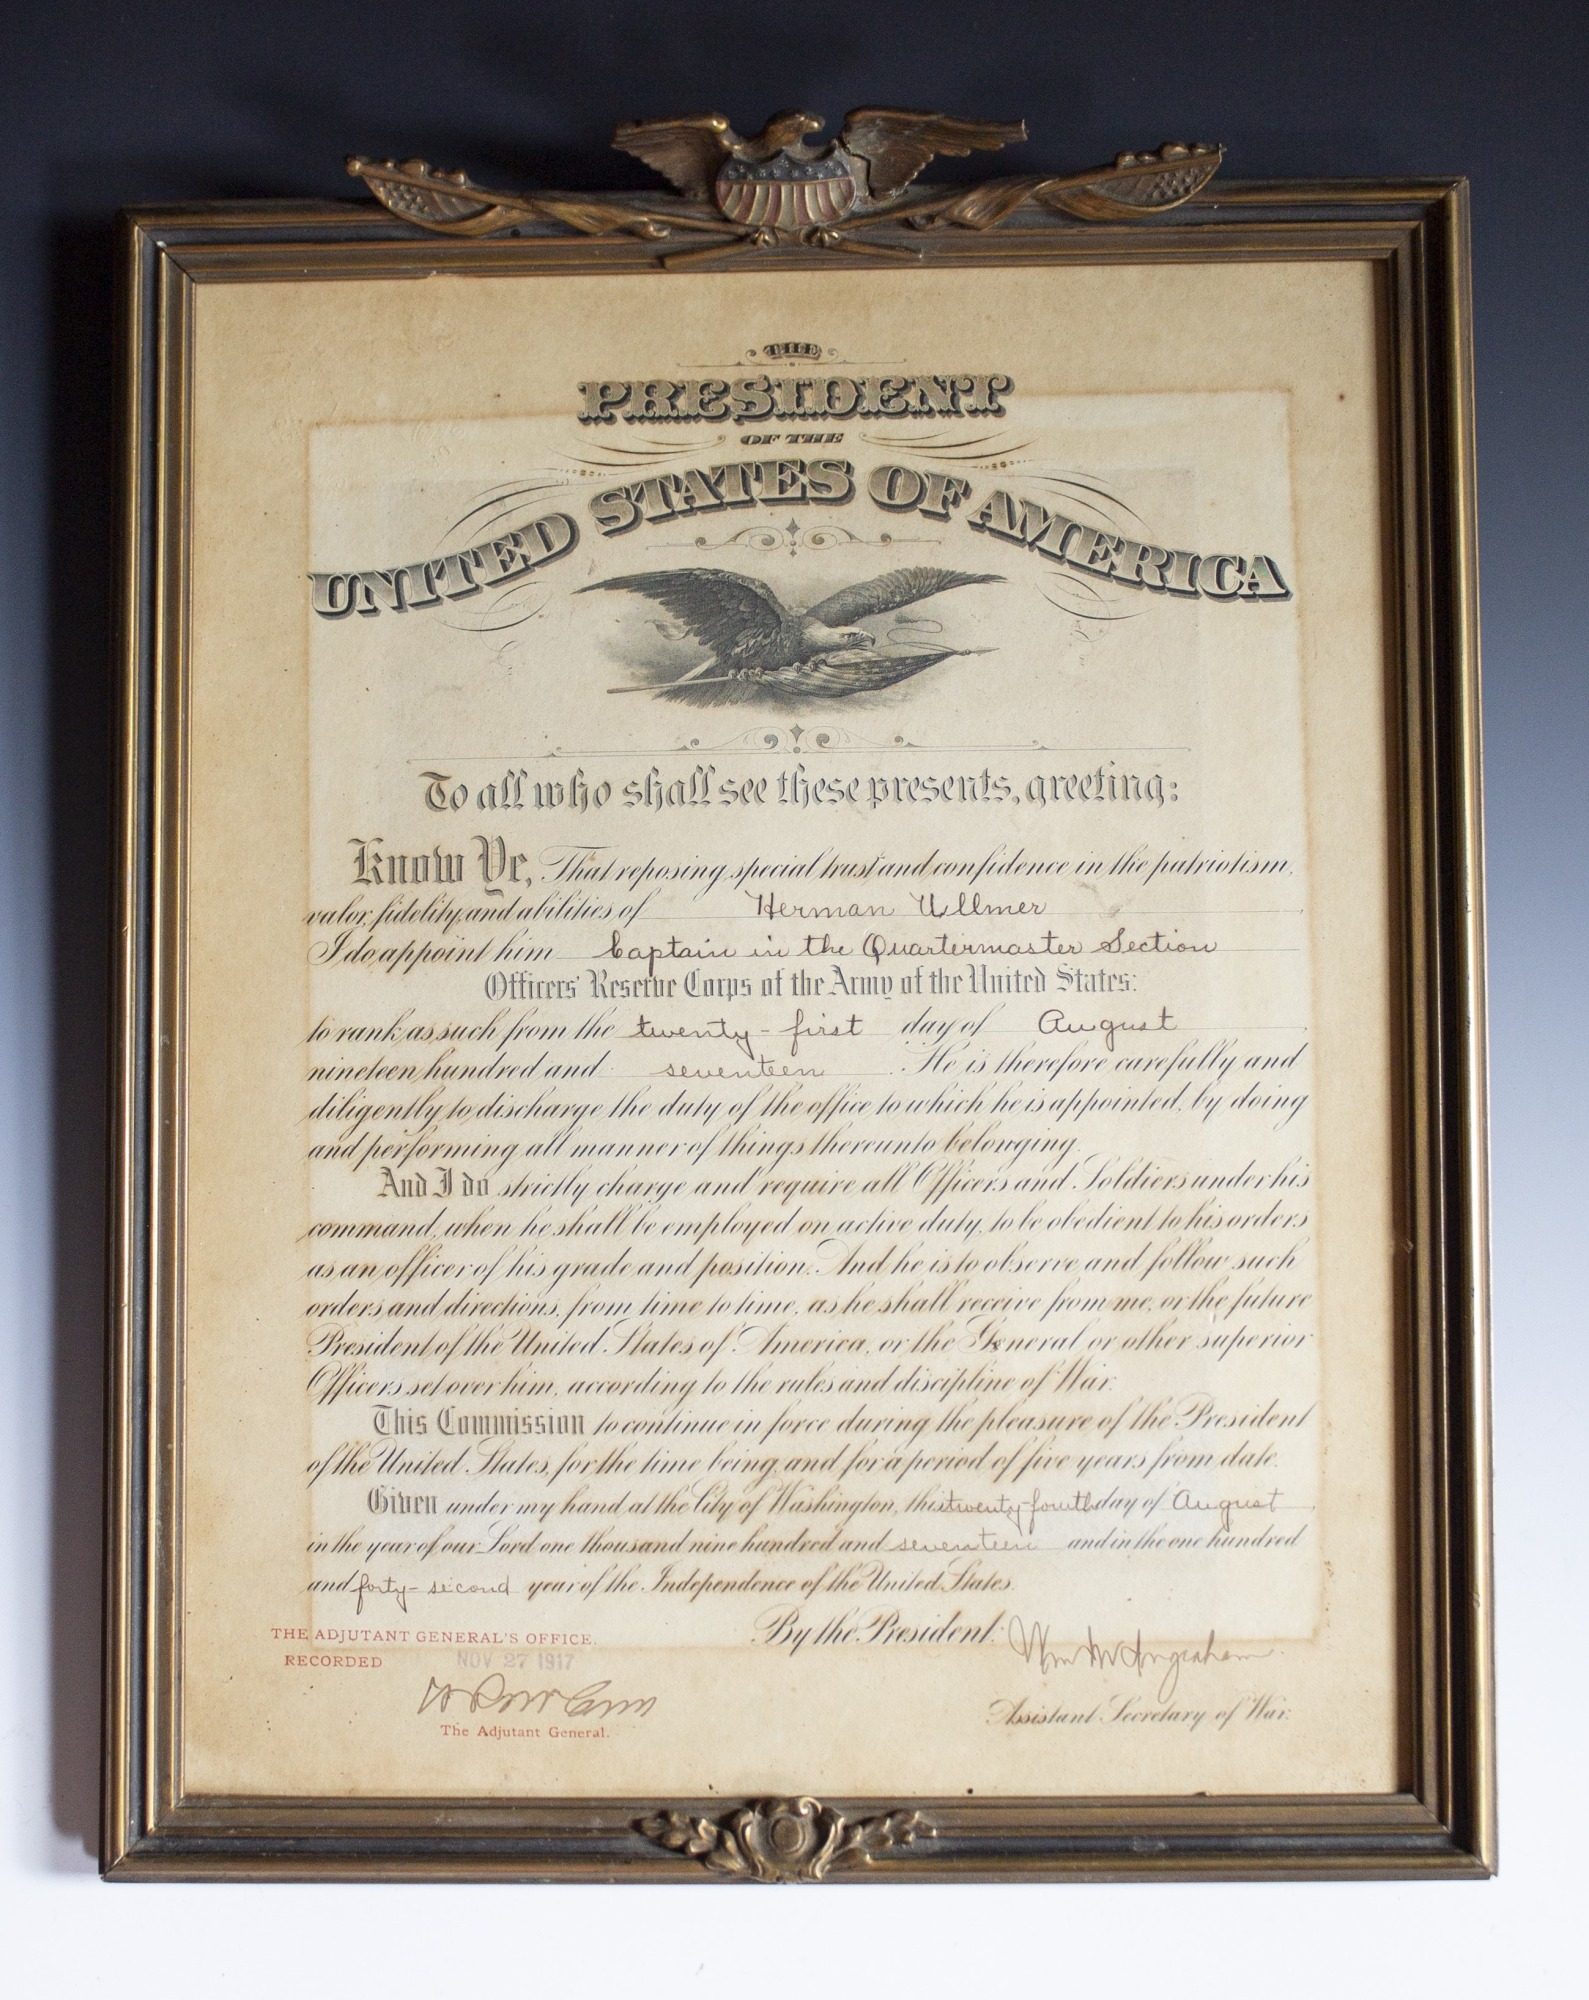 THE
PRESIDENT
OF THE
UNITED STATES OF AMERICA
To all who shall see these presents, greeting:
Know Ye, That reposing special trust and confidence in the patriotism,
valor, fidelity, and abilities of Herman Ullmer
I do appoint him Captain in the Quartermaster Section
Officers' Reserve Corps of the Army of the United States:
to rank as such from the twenty-first day of August
nineteen hundred and seventeen. He is therefore carefully and
diligently to discharge the duty of the office to which he is appointed, by doing
and performing all manner of things thereunto belonging.
And I do strictly charge and require all Officers and Soldiers under his
command, when he shall be employed on active duty, to be obedient to his orders
as an officer of his grade and position. And he is to observe and follow such
orders and directions, from time to time, as he shall receive from me, or the future
President of the United States of America, or the General or other superior
Officers set over him, according to the rules and discipline of War.
This Commission to continue in force during the pleasure of the President
of the United States, for the time being, and for a period of five years from date.
Given under my hand at the City of Washington, this twenty-fourth day of August
in the year of our Lord one thousand nine hundred and seventeen and in the one hundred
and forty-second year of the Independence of the United States.
By the President: Wm M Ingraham
THE ADJUTANT GENERAL'S OFFICE.
RECORDED NOV 27 1917
The Adjutant General.
Assistant Secretary of War.